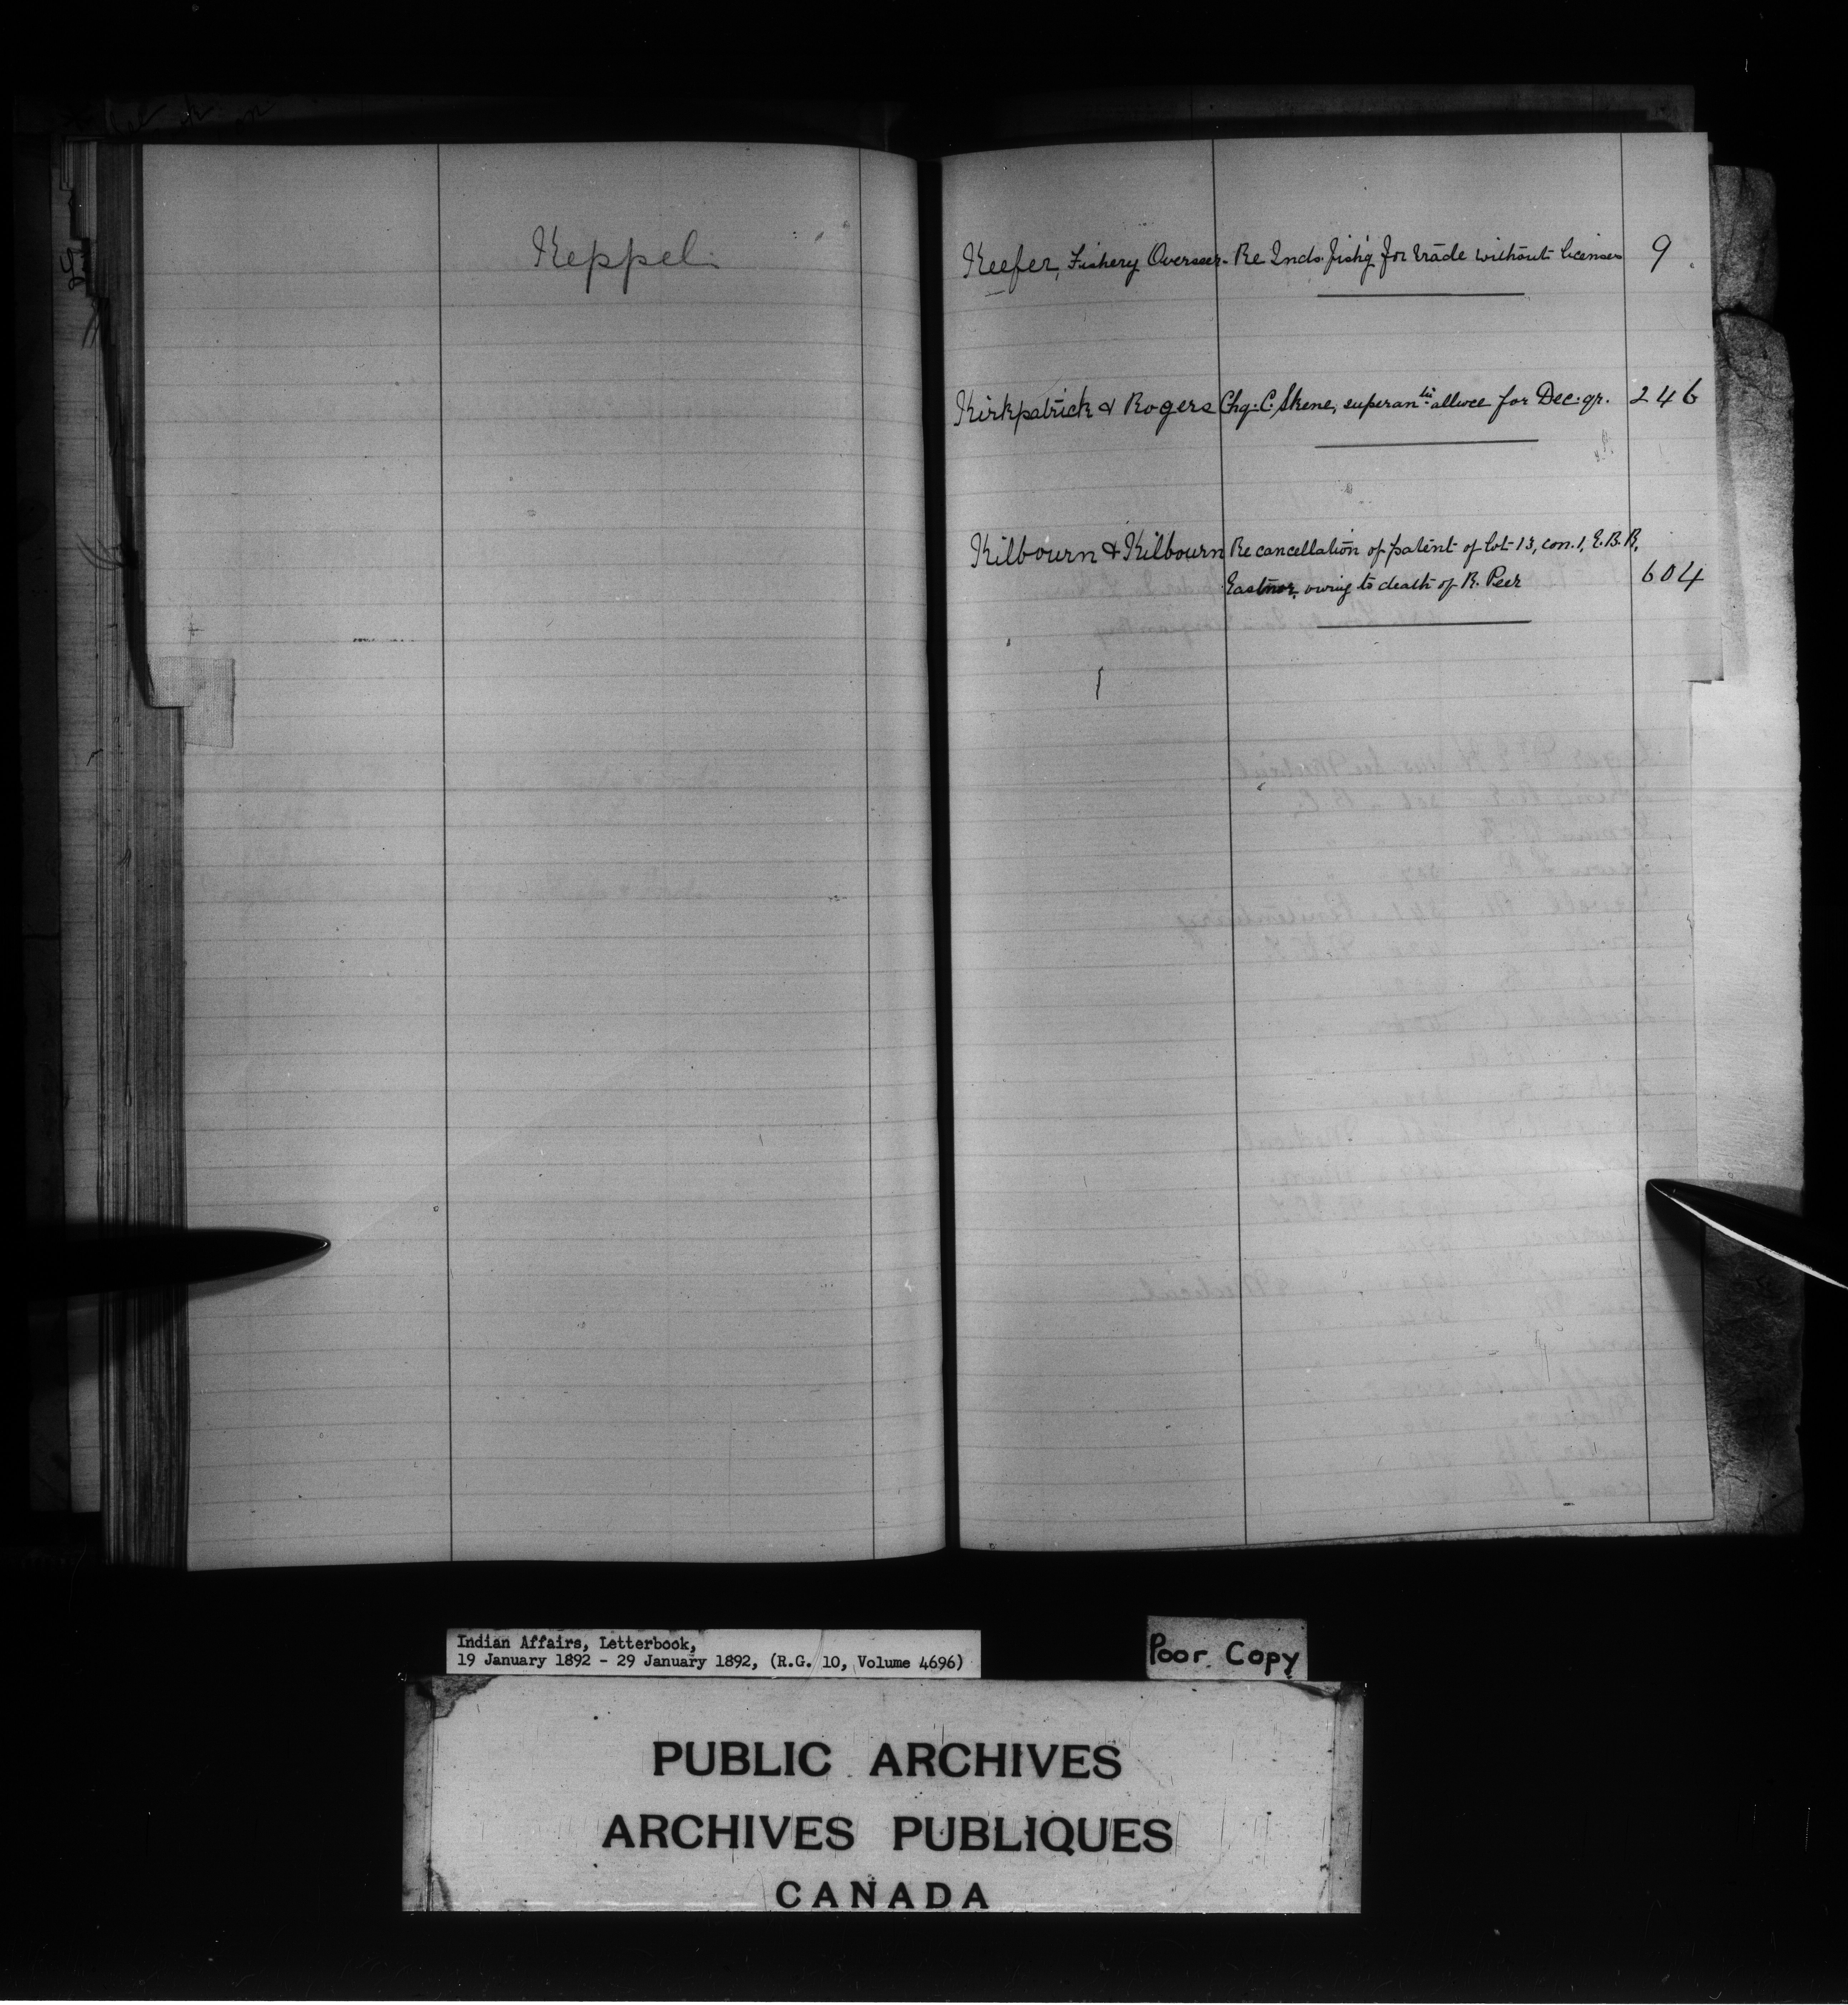 Keppel
Keefer, Fishery Overseer - Re Inds. fish'g for trade without licenses 9
Kirkpatrick & Rogers Chq. C. Skene, superan. allwce for Dec. qr. 246
Kilbourn & Kilbourn Re cancellation of patent of lot 13, con. 1, E.B.R,
Eastnor, owing to death of R. Peer 604
Indian Affairs, Letterbook,
19 January 1892 - 29 January 1892, (R.G. 10, Volume 4696)
Poor Copy
PUBLIC ARCHIVES
ARCHIVES PUBLIQUES
CANADA